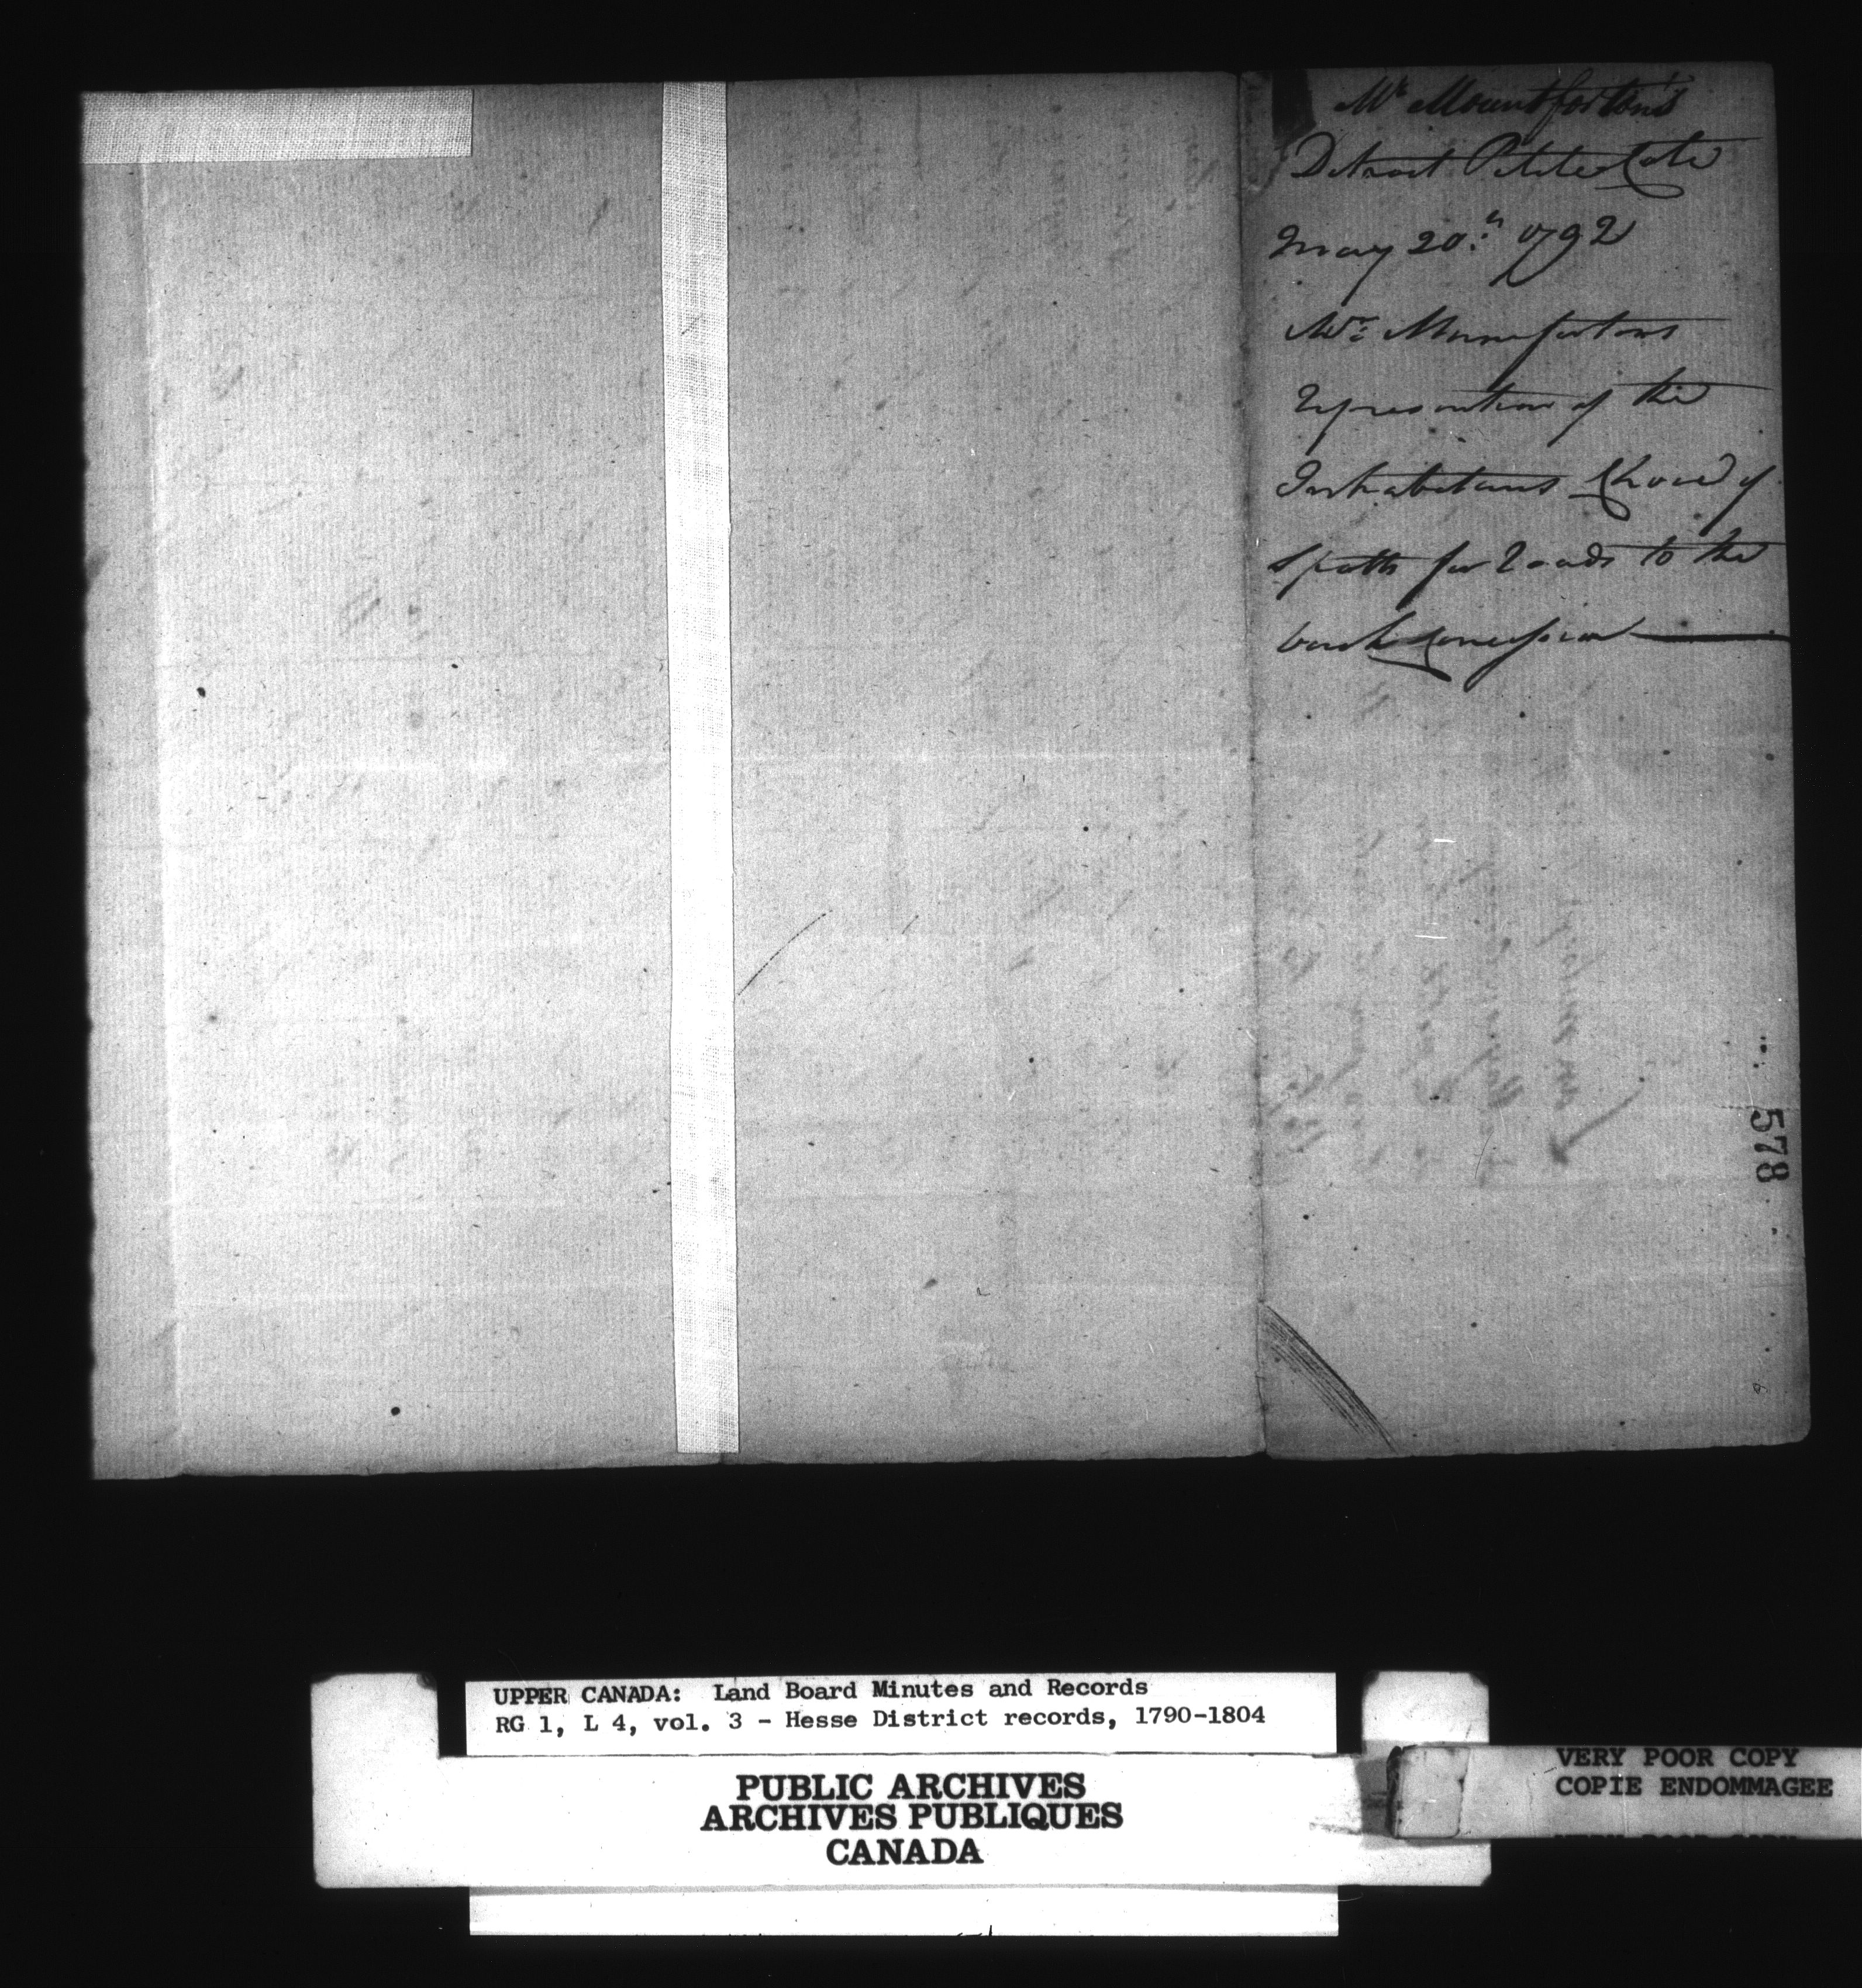 Mr Mountforton's
Detroit Petite Cote
May 20th 1792
Mr: Mounfortons
Represontion of the
Inhabitans Choice of
Spotts for Roads to the
back Concession
578
UPPER CANADA: Land Board Minutes and Records
RG 1, L 4, vol. 3 - Hesse District records, 1790-1804
PUBLIC ARCHIVES
ARCHIVES PUBLIQUES
CANADA
VERY POOR COPY
COPIE ENDOMMAGEE